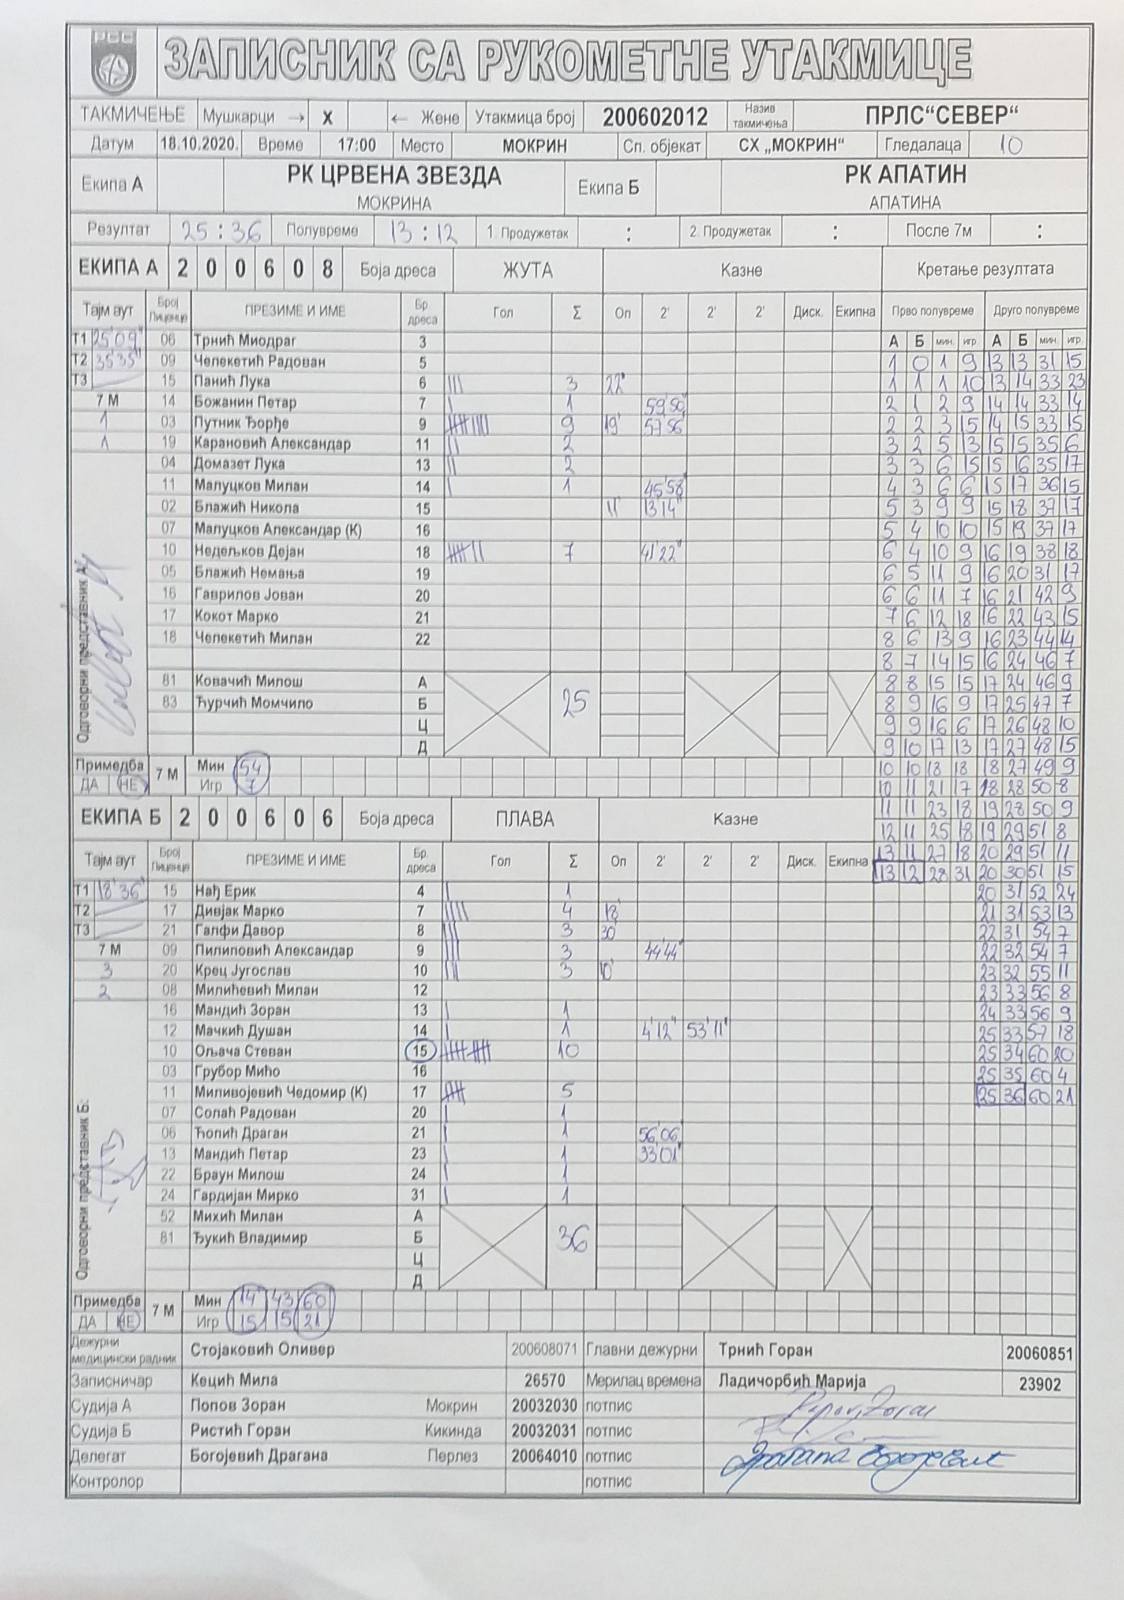 РСС
ЗАПИСНИК СА РУКОМЕТНЕ УТАКМИЦЕ
ТАКМИЧЕЊЕ Мушкарци → X ← Жене Утакмица број 200602012 Назив такмичења ПРЛС“СЕВЕР“
Датум 18.10.2020. Време 17:00 Место МОКРИН Сп. објекат СХ „МОКРИН“ Гледалаца 10
Екипа А РК ЦРВЕНА ЗВЕЗДА МОКРИНА Екипа Б РК АПАТИН АПАТИНА
Резултат 25:36 Полувреме 13:12 1. Продужетак : 2. Продужетак : После 7м :
ЕКИПА А 2 0 0 6 0 8 Боја дреса ЖУТА Казне Кретање резултата
Тајм аут Број Лиценце ПРЕЗИМЕ И ИМЕ Бр. дреса Гол Σ Оп 2' 2' 2' Диск. Екипна Прво полувреме Друго полувреме
А Б мин. игр. А Б мин. игр.
Т1 25'09" 06 Трнић Миодраг 3
Т2 35'35" 09 Челекетић Радован 5
Т3 15 Панић Лука 6 ||| 3 22'
7 М 14 Божанин Петар 7 | 1 59'50"
1 03 Путник Ђорђе 9 |||| |||| 9 19' 57'56"
1 19 Карановић Александар 11 || 2
04 Домазет Лука 13 || 2
11 Малуцков Милан 14 | 1 45'58"
02 Блажић Никола 15 11' 13'14"
07 Малуцков Александар (К) 16
10 Недељков Дејан 18 |||| || 7 41'22"
05 Блажић Немања 19
16 Гаврилов Јован 20
17 Кокот Марко 21
18 Челекетић Милан 22
81 Ковачић Милош А
83 Ђурчић Момчило Б 25
Ц
Д
Одговорни представник А:
Примедба ДА НЕ 7 М Мин 54
Игр 7
1 0 1 9 13 13 31 15
1 1 1 10 13 14 33 23
2 1 2 9 14 14 33 14
2 2 3 15 14 15 33 15
3 2 5 13 15 15 35 6
3 3 6 15 15 16 35 17
4 3 6 6 15 17 36 15
5 3 9 9 15 18 37 17
5 4 10 10 15 19 37 17
6 4 10 9 16 19 38 18
6 5 11 9 16 20 31 17
6 6 11 7 16 21 42 9
7 6 12 18 16 22 43 15
8 6 13 9 16 23 44 14
8 7 14 15 16 24 46 7
8 8 15 15 17 24 46 9
8 9 16 9 17 25 47 7
9 9 16 6 17 26 48 10
9 10 17 13 17 27 48 15
10 10 18 18 18 27 49 9
10 11 21 17 18 28 50 8
11 11 23 18 19 28 50 9
12 11 25 18 19 29 51 8
13 11 27 18 20 29 51 11
13 12 28 31 20 30 51 15
20 31 52 24
21 31 53 13
22 31 54 7
22 32 54 7
23 32 55 11
23 33 56 8
24 33 56 9
25 33 57 18
25 34 60 20
25 35 60 4
25 36 60 21
ЕКИПА Б 2 0 0 6 0 6 Боја дреса ПЛАВА Казне
Тајм аут Број Лиценце ПРЕЗИМЕ И ИМЕ Бр. дреса Гол Σ Оп 2' 2' 2' Диск. Екипна
Т1 18'36" 15 Нађ Ерик 4 | 1
Т2 17 Дивјак Марко 7 |||| 4 18'
Т3 21 Галфи Давор 8 ||| 3 30'
7 М 09 Пилиповић Александар 9 ||| 3 44'44"
3 20 Крец Југослав 10 ||| 3 10'
2 08 Милићевић Милан 12
16 Мандић Зоран 13 | 1
12 Мачкић Душан 14 | 1 4'12" 53'11"
10 Ољача Стеван 15 |||| |||| 10
03 Грубор Мићо 16
11 Миливојевић Чедомир (К) 17 |||| 5
07 Солаћ Радован 20 | 1
06 Ћопић Драган 21 | 1 56'06"
13 Мандић Петар 23 | 1 33'01"
22 Браун Милош 24 | 1
24 Гардијан Мирко 31 | 1
52 Михић Милан А
81 Ђукић Владимир Б 36
Ц
Д
Одговорни представник Б:
Примедба ДА НЕ 7 М Мин 14 43 60
Игр 15 15 21
Дежурни медицински радник Стојаковић Оливер 200608071 Главни дежурни Трнић Горан 20060851
Записничар Кецић Мила 26570 Мерилац времена Ладичорбић Марија 23902
Судија А Попов Зоран Мокрин 20032030 потпис Popov Zoran
Судија Б Ристић Горан Кикинда 20032031 потпис
Делегат Богојевић Драгана Перлез 20064010 потпис Драгана Богојевић
Контролор потпис